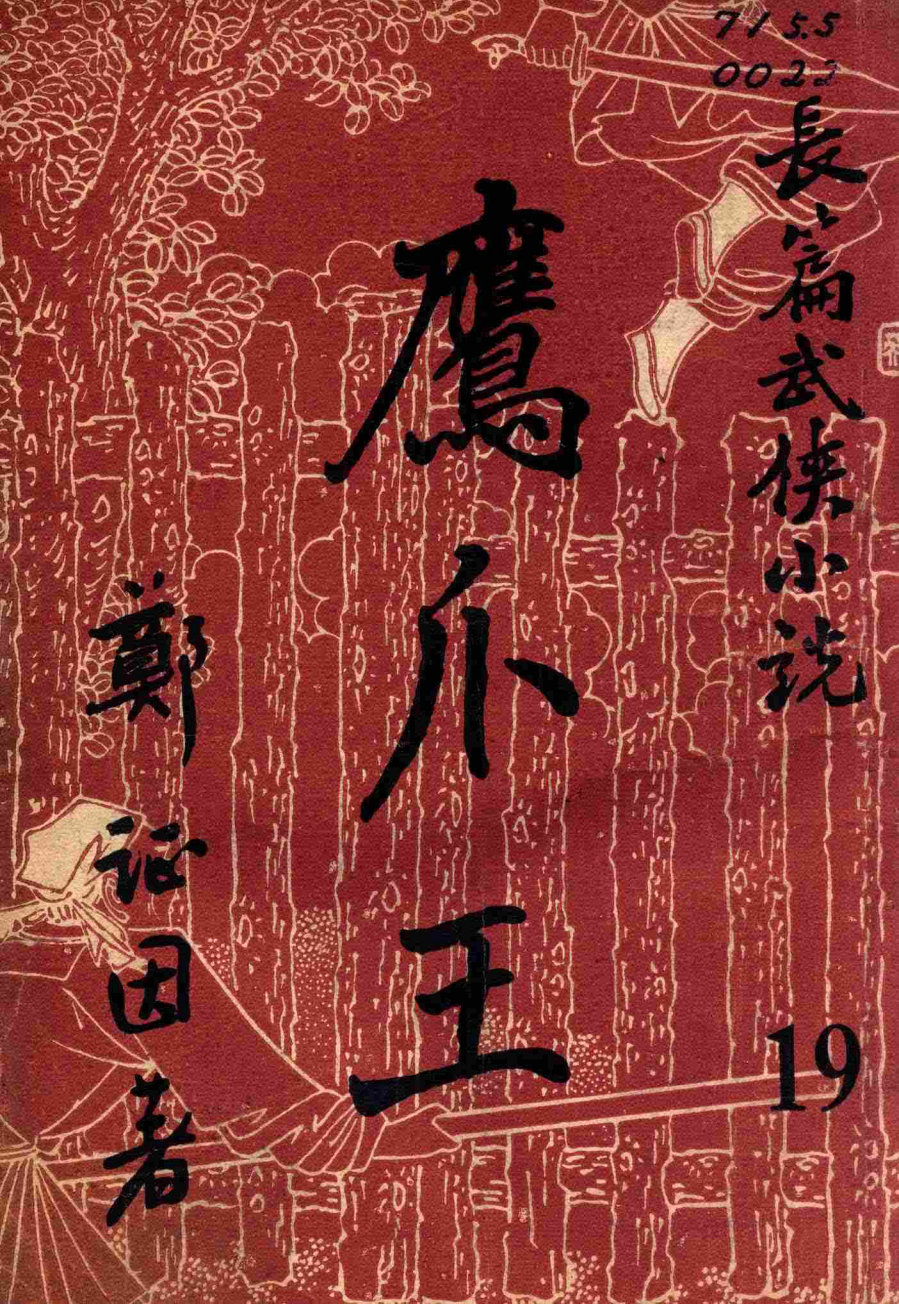 715.5
0022
長篇武俠小説
鷹爪王
鄭证因著
19